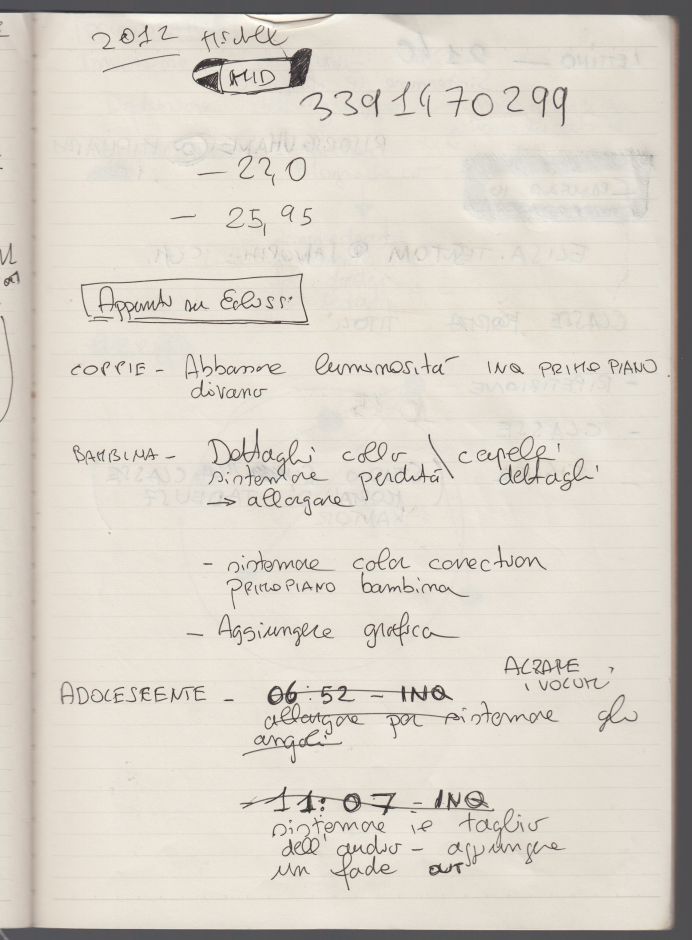 2012
AUD
3391470299
- 22,0
- 25,95
Appunti su Eclissi
COPPIE - Abbassare luminosità INQ PRIMO PIANO
divano
BAMBINA - Dettagli collo \ capelli
sistemare perdita dettagli
→ allargare
- sistemare color correction
PRIMO PIANO bambina
- Aggiungere grafica
ALZARE
I VOLUMI
ADOLESCENTE - 06:52 - INQ
allargare per sistemare gli
angoli
11:07 - INQ
sistemare il taglio
dell'audio - aggiungere
un fade OUT